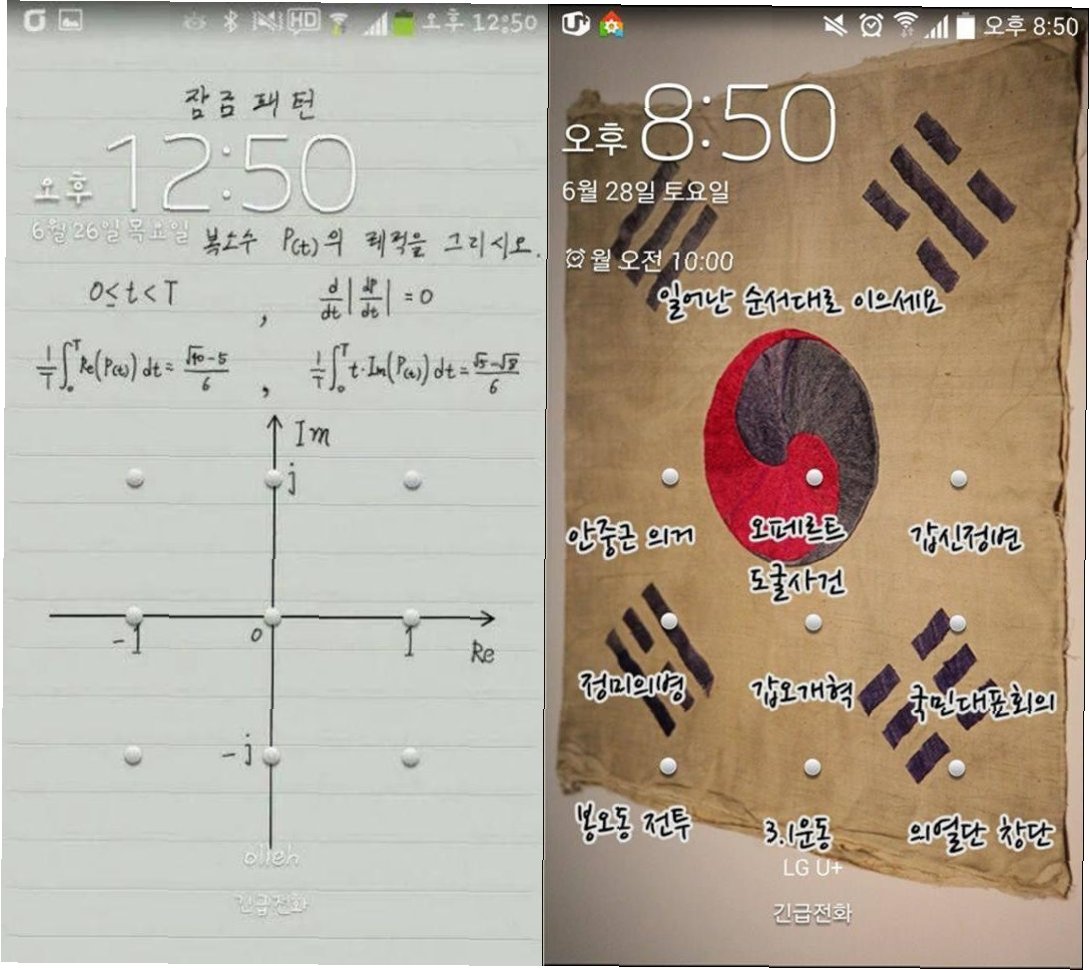 HD 오후 12:50
잠금패턴
오후 12:50
6월 26일 목요일
복소수 P(t)의 궤적을 그리시오.
0≤t<T , d/dt|dP/dt|=0
1/T∫₀ᵀRe(P(t))dt=(√10-5)/6 , 1/T∫₀ᵀt·Im(P(t))dt=(√5-√8)/6
Im
j
-1 0 1
Re
-j
olleh
긴급전화
U+ 오후 8:50
오후 8:50
6월 28일 토요일
월 오전 10:00
일어난 순서대로 이으세요
안중근 의거 오페르트 도굴사건 갑신정변
정미의병 갑오개혁 국민대표회의
봉오동 전투 3.1운동 의열단 창단
LG U+
긴급전화